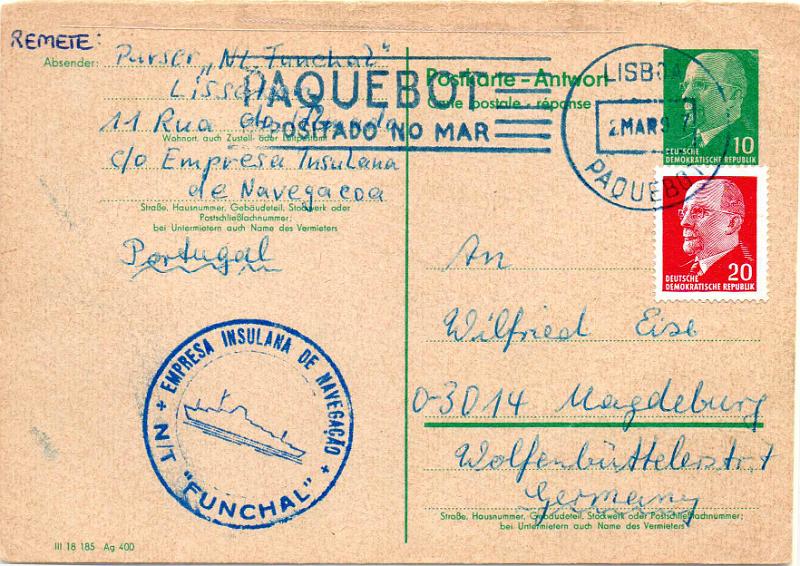 REMETE:
Absender: Purser „Nt. Funchal"
Lissabon
11 Rua da
Wohnort, auch Zustell- oder Leitpostamt
c/o Empresa Insulana
de Navegacoa
Straße, Hausnummer, Gebäudeteil, Stockwerk oder
Postschließfachnummer;
bei Untermietern auch Name des Vermieters
Portugal
PAQUEBOT
POSITADO NO MAR
Postkarte - Antwort
Carte postale - réponse
LISBOA
2MAR9
PAQUEBOT
10
DEUTSCHE
DEMOKRATISCHE REPUBLIK
20
DEUTSCHE
DEMOKRATISCHE REPUBLIK
An
Wilfried Eise
0-3014 Magdeburg
Wolfenbüttelerstr 7
Germany
Straße, Hausnummer, Gebäudeteil, Stockwerk oder Postschließfachnummer;
bei Untermietern auch Name des Vermieters
+ EMPRESA INSULANA DE NAVEGAÇÃO +
N/T "FUNCHAL"
III 18 185 Ag 400